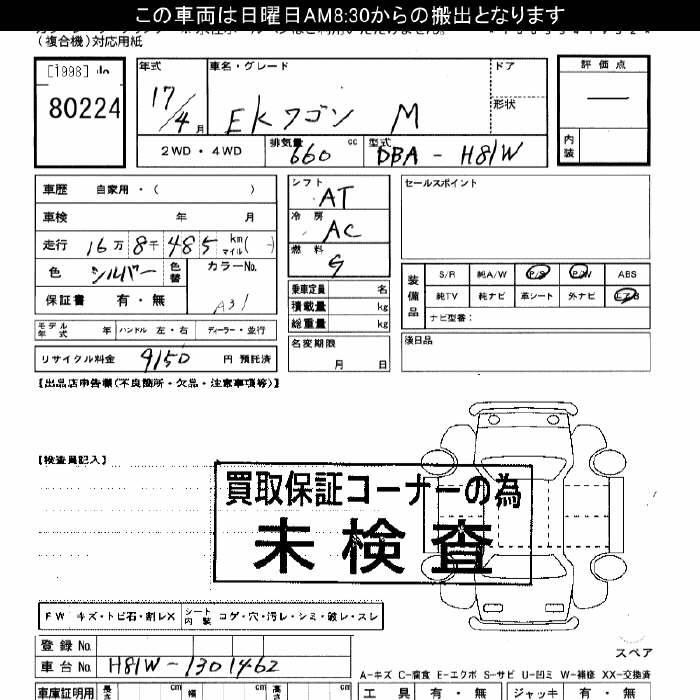 この車両は日曜日AM8:30からの搬出となります
(複合機)対応用紙
[1998]
80224
年式 車名・グレード ドア 評価点
17/4月 EKワゴン M 形状 —
2WD・4WD 排気量 660 cc 型式 DBA - H81W 内装
車歴 自家用・( )
車検 年 月
走行 16万8千485 km マイル( - )
色 シルバー 色替 カラーNo. A31
保証書 有・無
モデル年式 年 ハンドル 左・右 ディーラー・並行
リサイクル料金 9150 円 預託済
シフト AT
冷房 AC
燃料 G
乗車定員 名
積載量 kg
総重量 kg
名変期限 月 日
セールスポイント
装備品 S/R 純A/W P/S P/W ABS
純TV 純ナビ 革シート 外ナビ エアB
ナビ型番:
後日品
【出品店申告欄(不良箇所・欠品・注意事項等)】
【検査員記入】
買取保証コーナーの為
未検査
FW キズ・トビ石・割レX シート内装 コゲ・穴・汚レ・シミ・破レ・スレ
登録No.
車台No. H81W-1301462
スペア
A-キズ C-腐食 E-エクボ S-サビ U-凹ミ W-補修 XX-交換済
車庫証明用 長さ cm 幅 cm 高さ cm
工具 有・無 ジャッキ 有・無